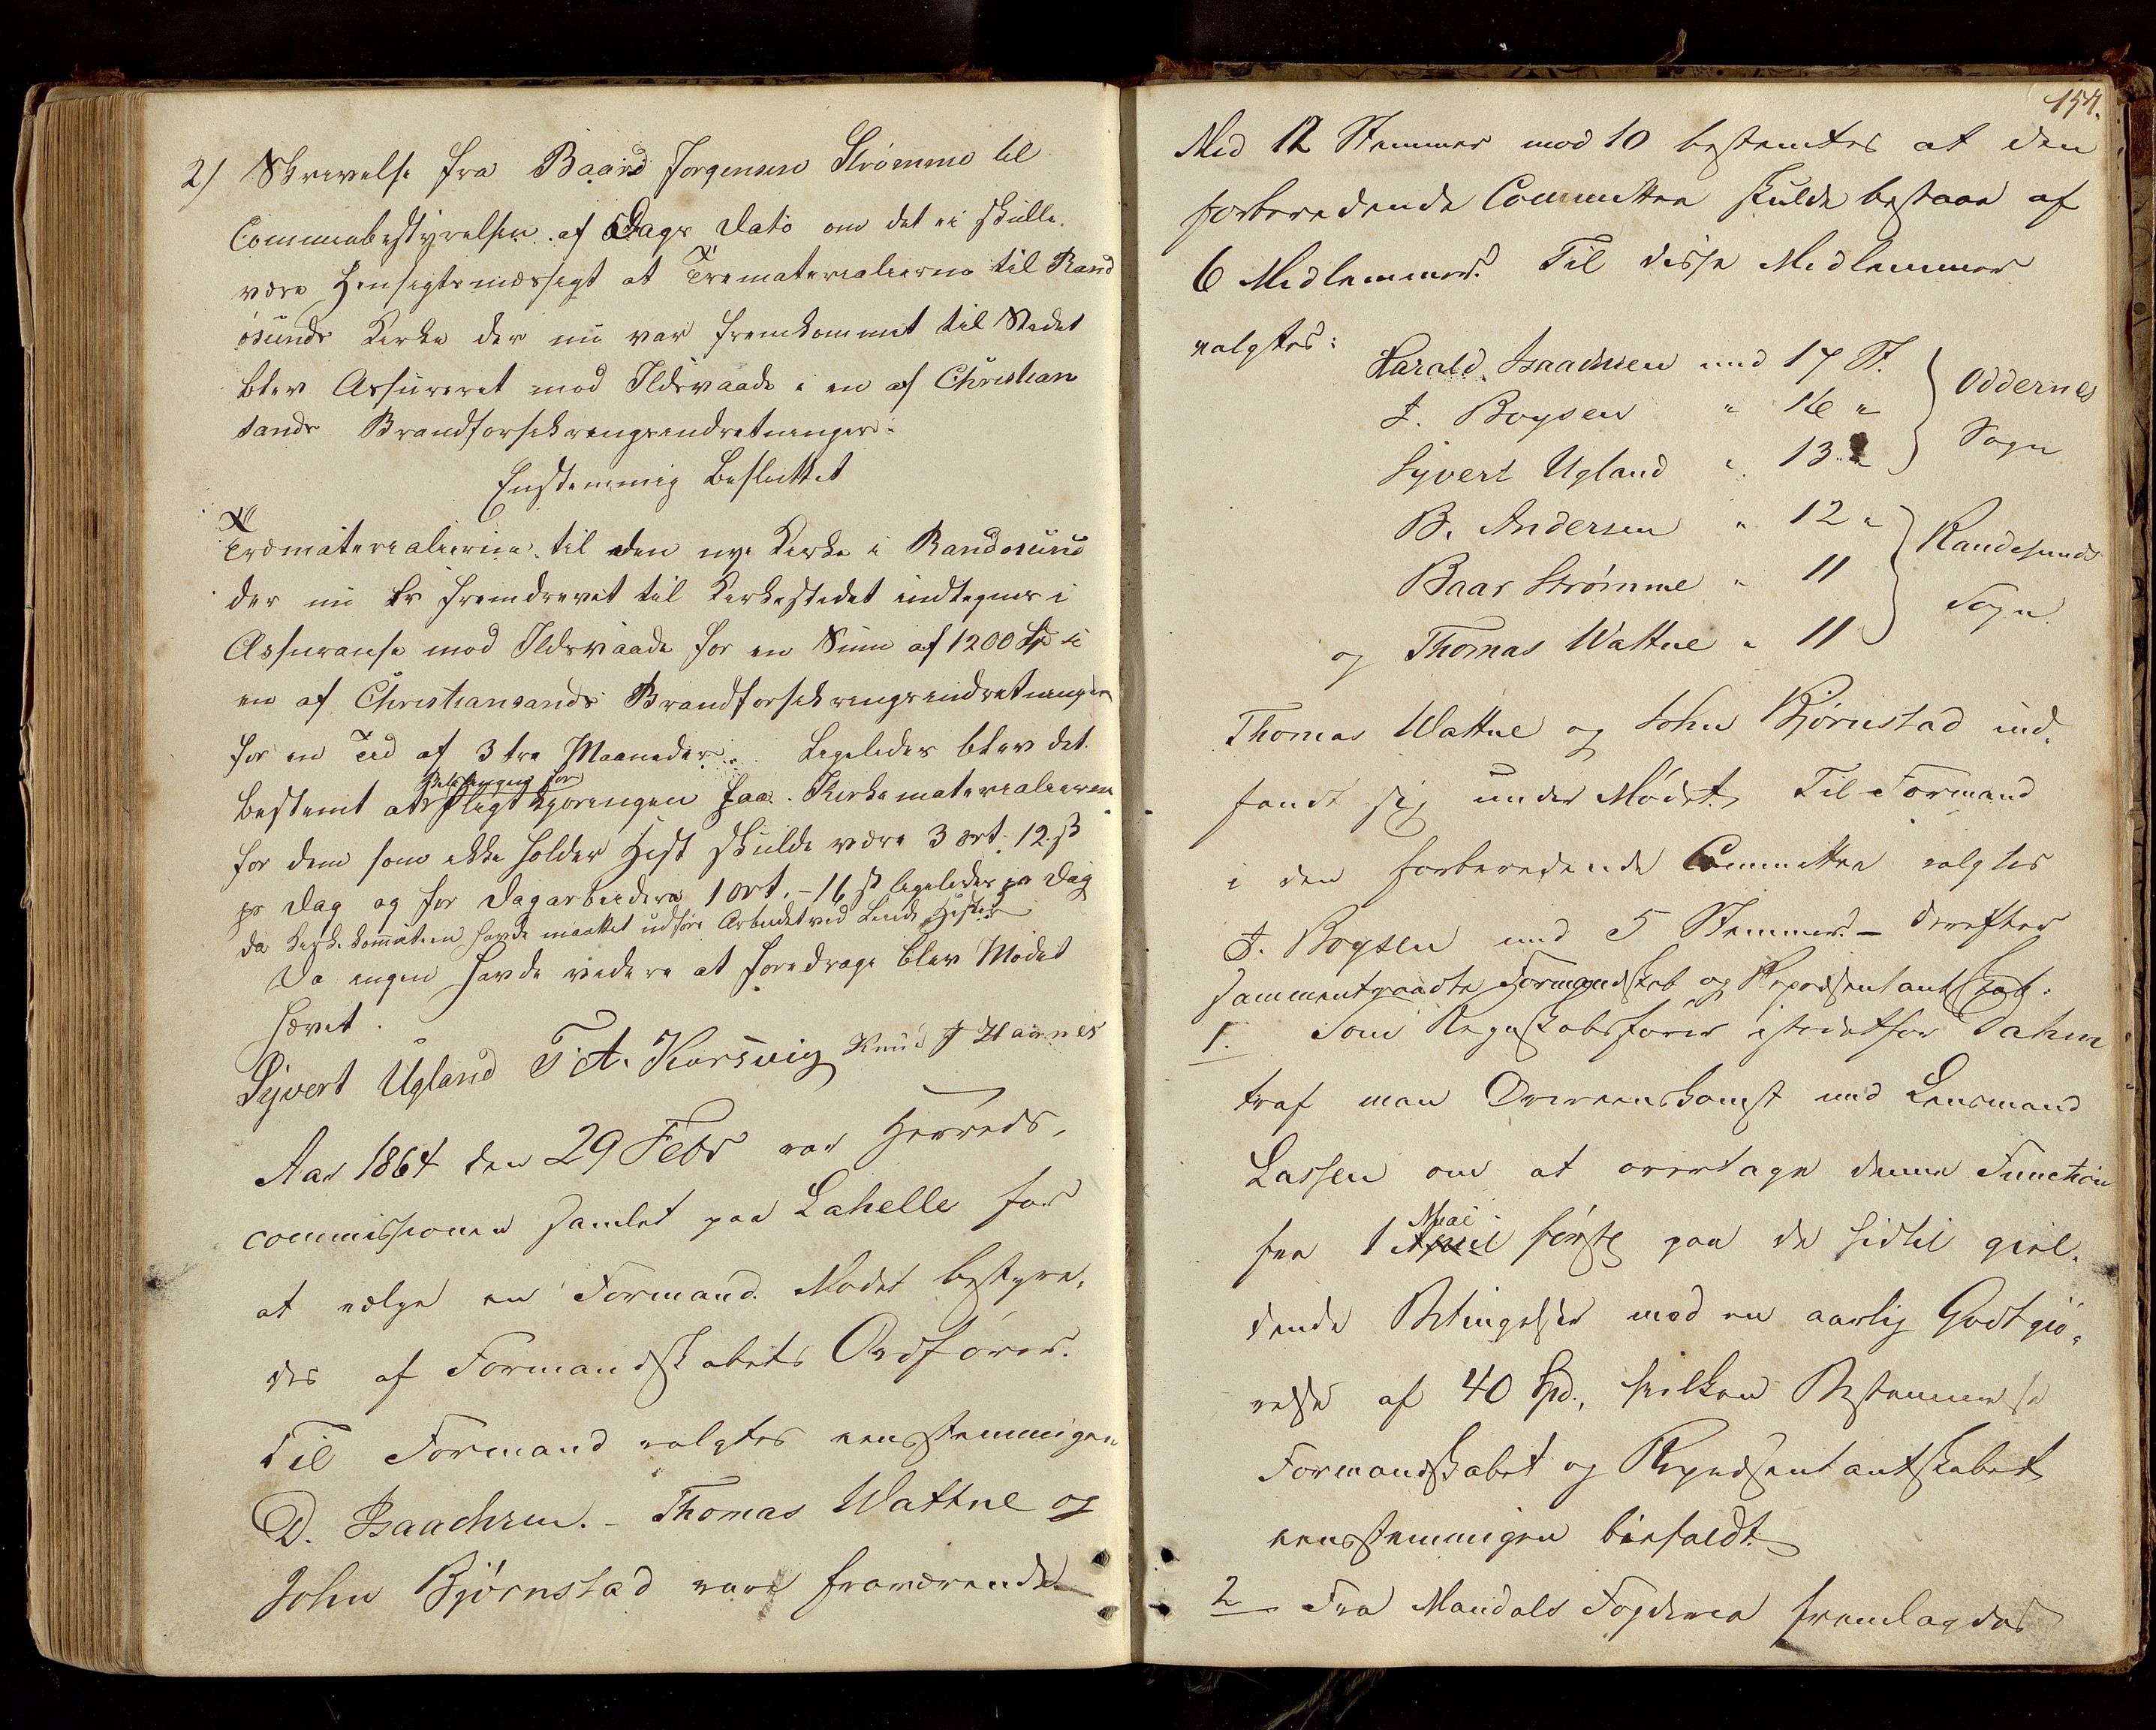 2) Skrivelse fra Baard Jorgensen Strømme til
Communebestyrelsen af Dags Dato om det ei skulle
være Hensigtsmæssigt at Trematerialierne til Rand
øsunds Kirke der nu var fremkommet til Stedet
blev Assureret mod Ildsvaade i en af Christian
sands Brandforsikringsindretninger.
Enstemmig Besluttet
Træmaterialierne til den nye Kirke i Randøsund
der nu er fremdrevet til Kirkestedet indtegnes i
Assuranse mod Ildsvaade for en Sum af 1200 Spd i
en af Christiansands Brandforsikringsindretninger
for en Tid af 3 tre Maaneder. Ligeledes blev det
Betalingen for
bestemt at Pligtkjøringen paa Kirkematerialierne
for dem som ikke holder Hest skulde være 3 ort. 12 ß
pr Dag og for Dagarbeidere 1 ort. - 16 ß ligeledes pr Dag
da Kirkekommiteen havde maattet udføre Arbeidet ved Leiede Heste
Da ingen havde videre at foredrage blev Mødet
hævet.
Syvert Ugland T. A. Korsvig Knud J Haanes
Aar 1864 den 29 Febr var Herreds-
commissionen samlet paa Lahelle for
at vælge en Formand. Mødet bestyre-
des af Formandskabets Ordfører.
Til Formand valgtes eensstemmigen
D. Isaachsen. - Thomas Wattne og
John Bjørnstad vare fraværende
154.
Med 12 Stemmer mod 10 bestemtes at den
forberedende Committee skulde bestaae af
6 Medlemmer. Til disse Medlemmer
valgtes:
Harald Isaachsen med 17 St.
J. Boysen " 16 " Oddernes
Syvert Ugland " 13 " Sogn
B. Andersen " 12 "
Baar Strømme " 11 Randesunds
og Thomas Wattne " 11 Sogn
Thomas Wattne og John Bjørnstad ind-
fandt sig under Mødet. Til Formand
i den forberedende Committee valgtes
J. Boysen med 5 Stemmer. - Derefter
sammentraadte Formandskab og Repræsentantskab.
1. Som Regnskabsfører istedetfor Dahm
traf man Overeenskomst med Lensmand
Lassen om at overtage denne Function
Mai
fra 1 April første paa de hidtil gjel-
dende Betingelser mod en aarlig Godtgjø-
relse af 40 Spd., hvilken Bestemmelse
Formandskabet og Repræsentantskabet
eensstemmigen bifaldt.
2 Fra Mandals Fogderie fremlagdes